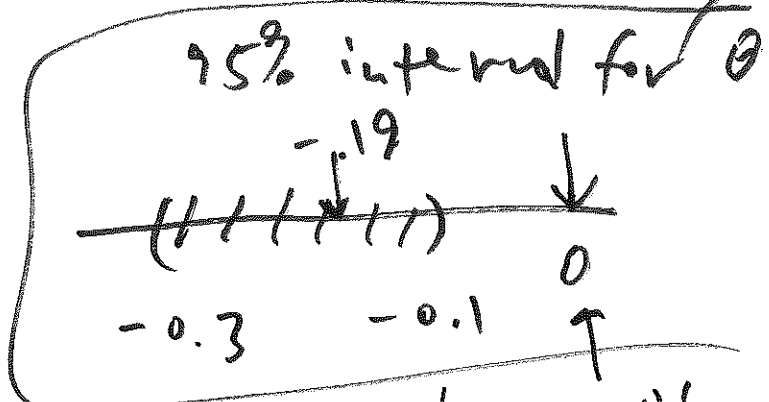 95% interval for θ
-.19
0
-0.3 -0.1